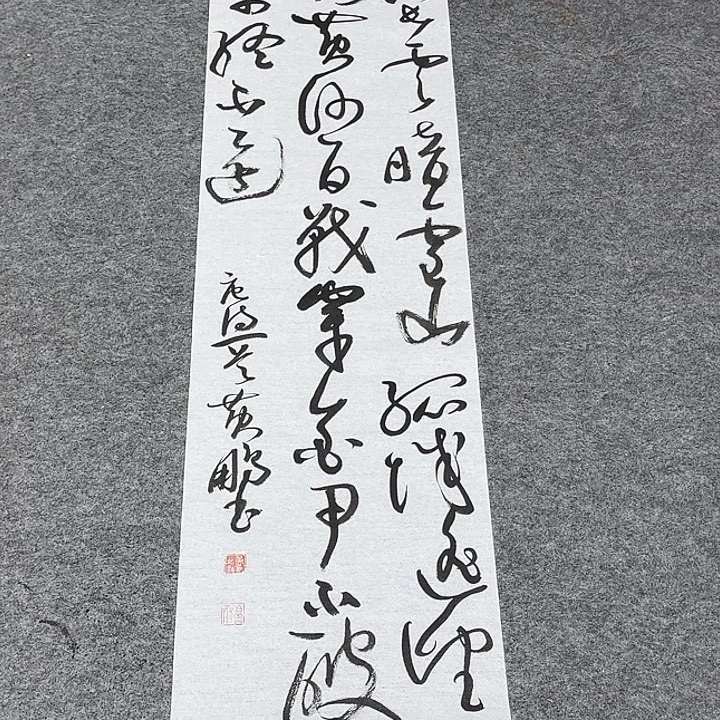 云暗雪山孤城遥望
黄沙百战穿金甲不破
终不还
唐诗一首黄鹏书